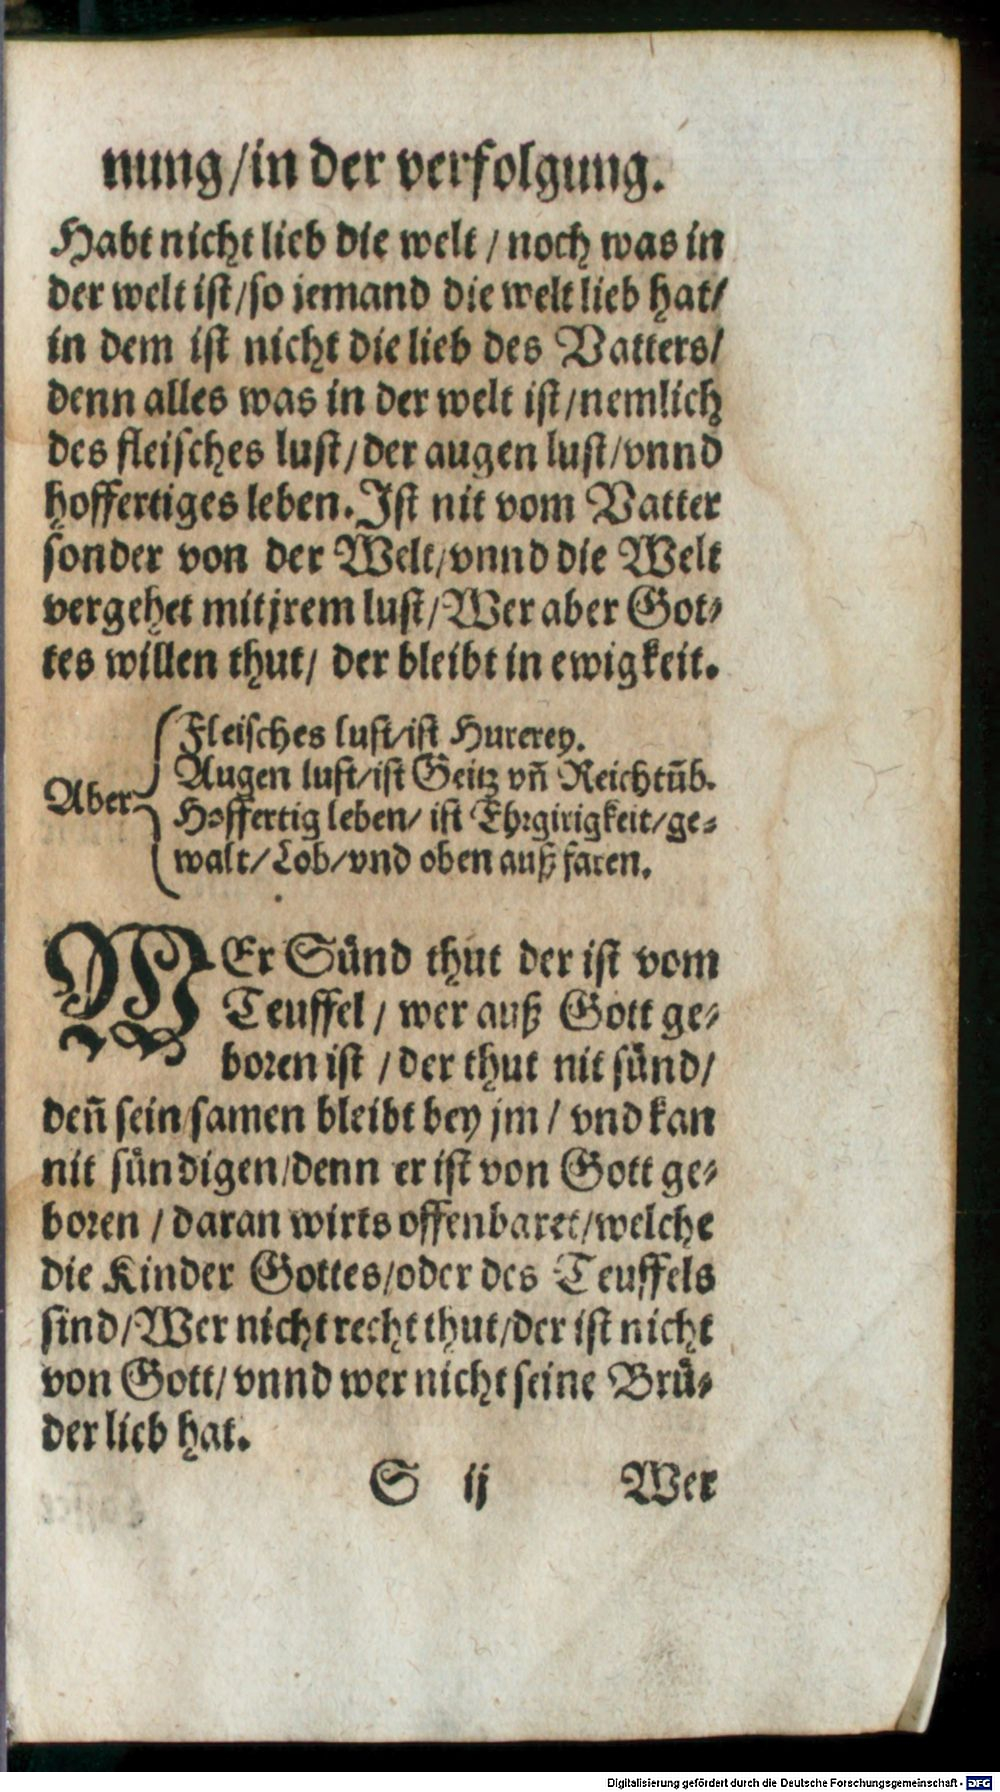 nung/in der verfolgung.
Habt nicht lieb die welt / noch was in
der welt ist/so jemand die welt lieb hat/
in dem ist nicht die lieb des Vatters/
denn alles was in der welt ist/nemlich
des fleisches lust/der augen lust/vnnd
hoffertiges leben. Ist nit vom Vatter
sonder von der Welt/vnnd die Welt
vergehet mit jrem lust/Wer aber Got-
tes willen thut/ der bleibt in ewigkeit.
Aber
Fleisches lust/ist Hurerey.
Augen lust/ist Geitz vn̄ Reichtūb.
Hoffertig leben/ ist Ehrgirigkeit/ge-
walt/Lob/vnd oben auß faren.
WEr Sünd thut der ist vom
Teuffel / wer auß Gott ge-
boren ist / der thut nit sünd/
den̄ sein samen bleibt bey jm / vnd kan
nit sündigen/denn er ist von Gott ge-
boren / daran wirts offenbaret/welche
die Kinder Gottes/oder des Teuffels
sind/Wer nicht recht thut/der ist nicht
von Gott/vnnd wer nicht seine Brü-
der lieb hat.
S ij Wer
Digitalisierung gefördert durch die Deutsche Forschungsgemeinschaft - DFG